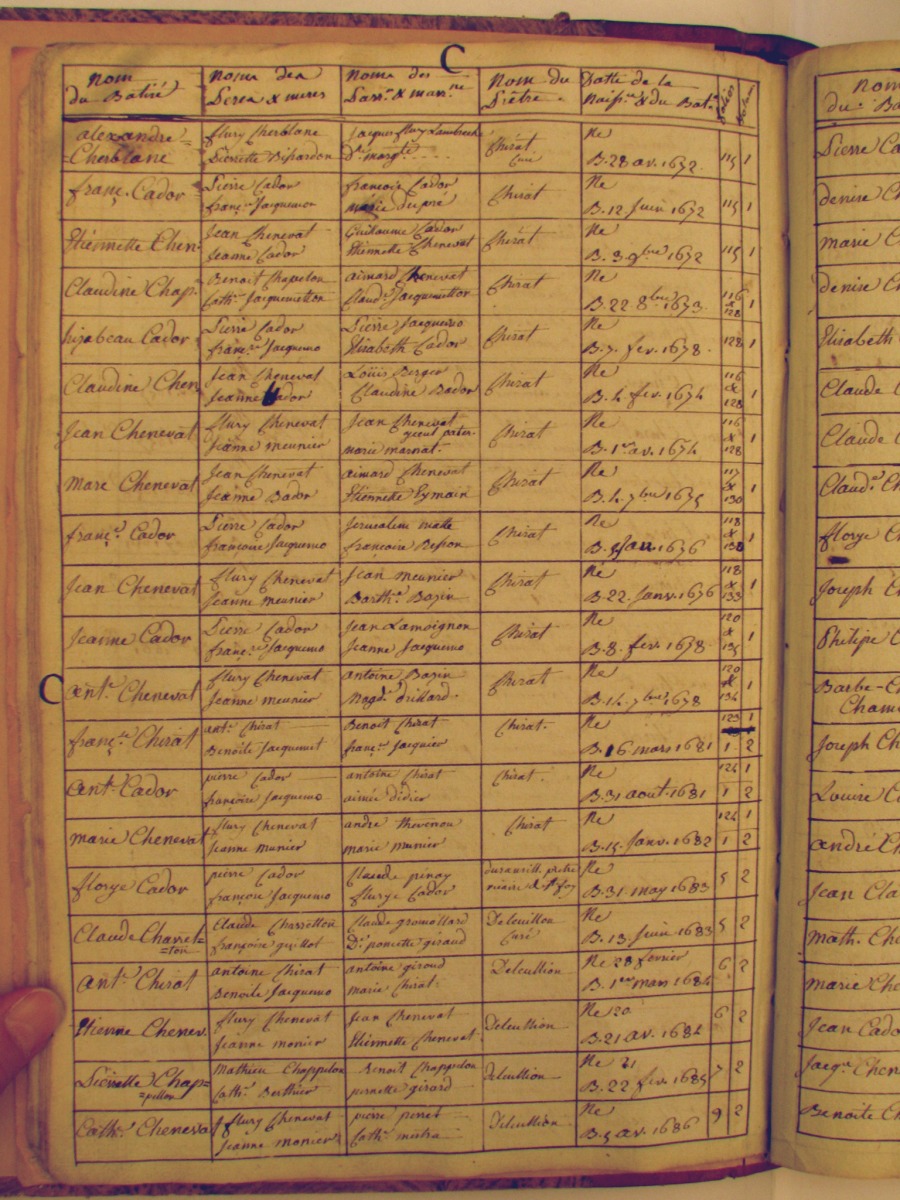 C
Nom du Batisé | Noms des Peres & meres | Noms des Parr.ns & marr.ne | Nom du Prêtre | Datte de la Naiss.ce & du Bat.e | folios | Volume
alexandre Cherblanc | flury Cherblanc | Jacques flury
Pierrette | D.e marg.te | Chirat Curé | Ne B. 28 av. 1672 | 115 | 1
franç. Cador | Pierre Cador | francois Cador
franç.se Jacquemon | marie dupré | Chirat | Ne B. 12 Juin 1672 | 115 | 1
Etiennette Chen. | Jean Chenevat | Guillaume Cador
Jeanne Cador | Etiennette Chenevat | Chirat | Ne B. 3 9bre 1672 | 115 | 1
Claudine Chap. | Benoit Chapelon | aimard Chenevat
Cath.e Jacquemetton | Claud.e Jacquemetton | Chirat | Ne B. 22 8bre 1673 | 116 & 128 | 1
Izabeau Cador | Pierre Cador | Pierre Jacquemo
franç.se Jacquemo | Elizabeth Cador | Chirat | Ne B. 7 fev. 1678 | 128 | 1
Claudine Chen | Jean Chenevat | Loüis Berger
Jeanne Cador | Claudine Bador | Chirat | Ne B. 4 fev. 1674 | 116 & 128 | 1
Jean Chenevat | flury Chenevat | Jean Chenevat
Jeanne meunier | marie marnat | Chirat | Ne B. 1er av. 1674 | 116 & 128 | 1
Marc Chenevat | Jean Chenevat | aimard Chenevat
Jeanne Bador | Etiennette Eymain | Chirat | Ne B. 4 7bre 1675 | 117 & 130 | 1
franç.s Cador | Pierre Cador | Jerusalem matte
françoise Jacquemo | françoise Besson | Chirat | Ne B. Jan. 1676 | 118 & | 1
Jean Chenevat | flury Chenevat | Jean meunier
Jeanne meunier | Barth.e Bazin | Chirat | Ne B. 22 Janv. 1676 | 118 & 133 | 1
Jeanne Cador | Pierre Cador | Jean Lamoignon
franç.se Jacquemo | Jeanne Jacquemo | Chirat | Ne B. 8 fev. 1678 | 120 & 135 | 1
C
ant.e Chenevat | flury Chenevat | antoine Bazin
Jeanne meunier | Magd. | Chirat | Ne B. 14 7bre 1678 | 120 & 134 | 1
franç.se Chirat | ant.e Chirat | Benoit Chirat | Chirat | Ne | 123 | 1
Benoite Jacquemet | franç.se Jacquier | B. 16 mars 1681 | 1 | 2
ant. Cador | pierre Cador | antoine Chirat | Chirat | Ne | 124 | 1
françoise Jacquemo | aimée didier | B. 31 aout 1681 | 1 | 2
marie Chenevat | flury Chenevat | andre thevenou | Chirat | Ne | 124 | 1
Jeanne munier | marie munier | B. 15 Janv. 1682 | 1 | 2
florye Cador | pierre Cador | Claude penay
françoise Jacquemo | flurye Cador | Ne B. 31 may 1683 | 5 | 2
Claude Charret=ton | Claude Charretton | Claude gromollard
françoise guillot | D.e poncette giraud | Delouillon Curé | Ne B. 13 Juin 1683 | 5 | 2
ant.e Chirat | antoine Chirat | antoine giroud
Benoite Jacquemo | marie Chirat | Deleullion | Ne 28 février B. 1er mars 1684 | 6 | 2
Etienne Chenev. | flury Chenevat | Jean Chenevat
Jeanne monier | Etiennette Chenevat | Deleullion | Ne 20 B. 21 av. 1684 | 6 | 2
Pierrette Chap=pellon | Mathieu Chappelon | Benoit Chappelon
Cath.e Berthier | pernette girard | Deleullion | Ne 21 B. 22 fev. 1685 | 7 | 2
Cath.e Chenevat | flury Chenevat | pierre perret
Jeanne monier | Cath.e mistra | Deleullion | Ne B. 5 av. 1686 | 9 | 2
Nom du Ba
Pierre Ca
denise Ch
marie C
denise C
Elisabeth
Claude C
Claude C
Claud.e C
florye C
Joseph C
Philipe C
Barbe-C
Cham
Joseph Ch
Louise C
andré Ch
Jean Cla
math. Che
marie Che
Jean Cado
Jacq.e Chen
Benoite Ch